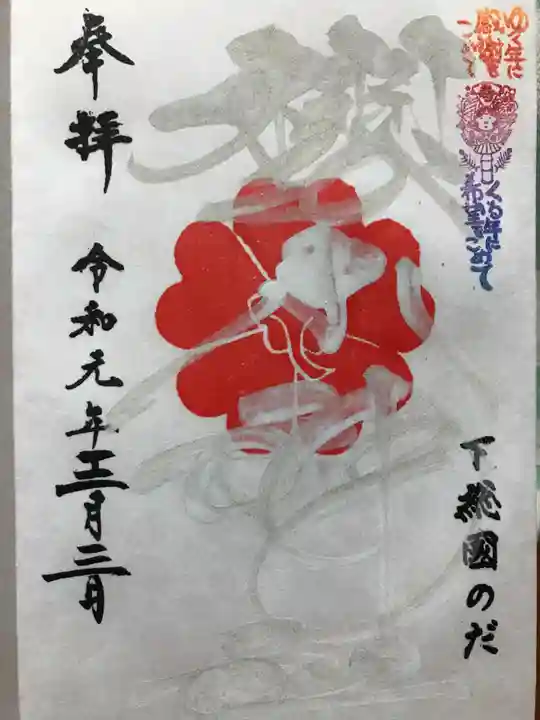 ゆく年に
感謝を
こめて
くる年に
希望をこめて
下総國のだ
奉拝
令和元年十二月三日